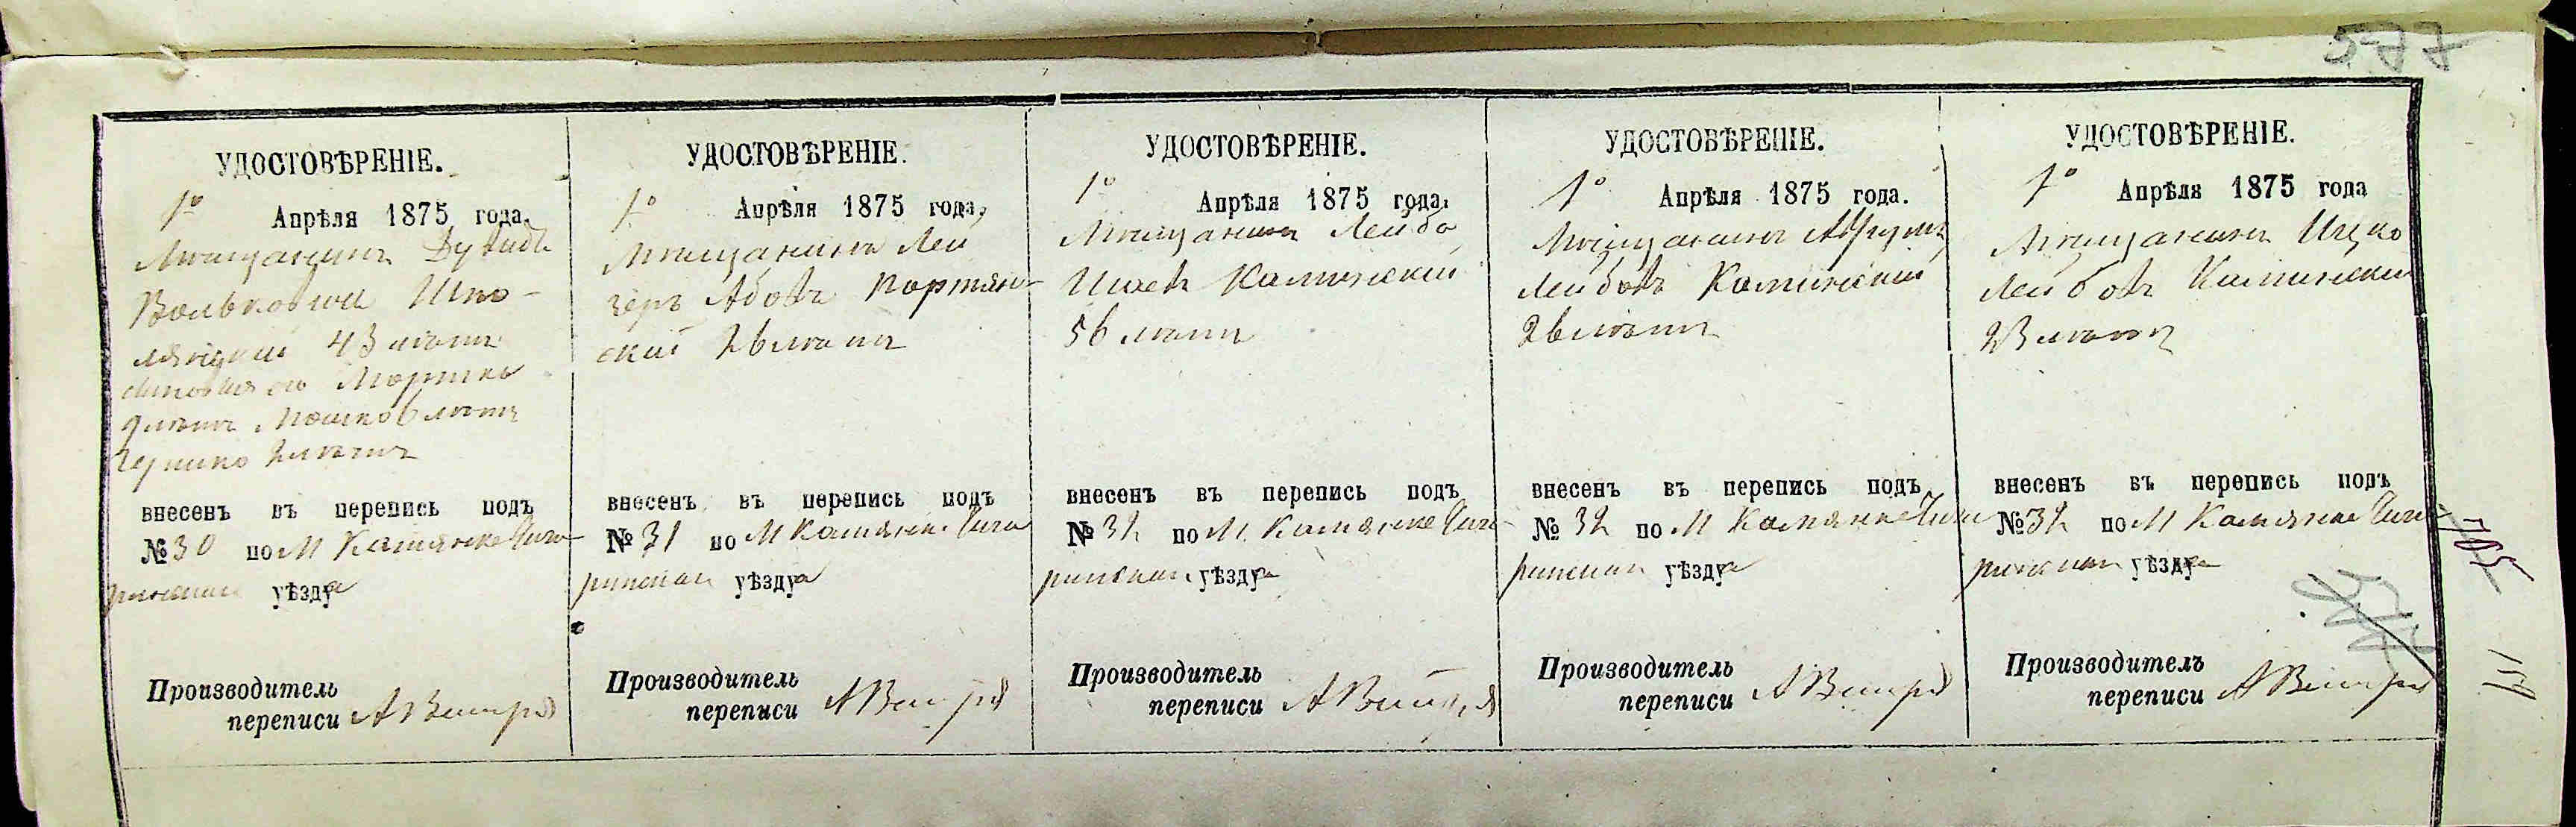 577
УДОСТОВѢРЕНІЕ.
1º Апрѣля 1875 года.
Мѣщанинъ Дувидъ
Вольковичъ Шпо-
лянскій 43 лѣтъ
сыновья его Мортко
9 лѣтъ Мошко 6 лѣтъ
Гершко 2 лѣтъ
внесенъ въ перепись подъ
№ 30 по М Камянке Чиги-
ринскаго уѣзда
Производитель
переписи
УДОСТОВѢРЕНІЕ.
1º Апрѣля 1875 года,
Мѣщанинъ Лей
зеръ Абовъ Портян-
скій 26 лѣтъ
внесенъ въ перепись подъ
№ 31 по М Камянке Чиги
ринскаго уѣзда
Производитель
переписи
УДОСТОВѢРЕНІЕ.
1º Апрѣля 1875 года.
Мѣщанинъ Лейба
Ицевъ Каминскій
56 лѣтъ
внесенъ въ перепись подъ
№ 32 по М. Камянке Чиги-
ринскаго уѣзда
Производитель
переписи
УДОСТОВѢРЕНІЕ.
1º Апрѣля 1875 года.
Мѣщанинъ Аврумъ
Лейбовъ Каминскій
26 лѣтъ
внесенъ въ перепись подъ
№ 32 по М Камянке Чиги
ринскаго уѣзда
Производитель
переписи
УДОСТОВѢРЕНІЕ.
1º Апрѣля 1875 года
Мѣщанинъ Ицко
Лейбовъ Каминскій
23 лѣтъ
внесенъ въ перепись подъ
№ 32 по М Камянке Чиги
ринскаго уѣзда
Производитель
переписи
705